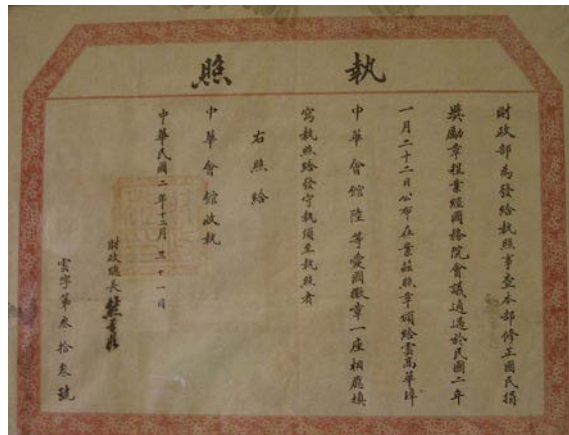 執照
財政部為發給執照事查本部修正國民捐
獎勵章程業經國務院會議通過於民國二年
一月二十二日公布在案茲照章頒給雲高華埠
中華會館陸等愛國徽章一座相應填
寫執照給發守執須至執照者
右照給
中華會館收執
中華民國二年十二月三十一日
財政總長熊希齡
雲字第叁拾叁號